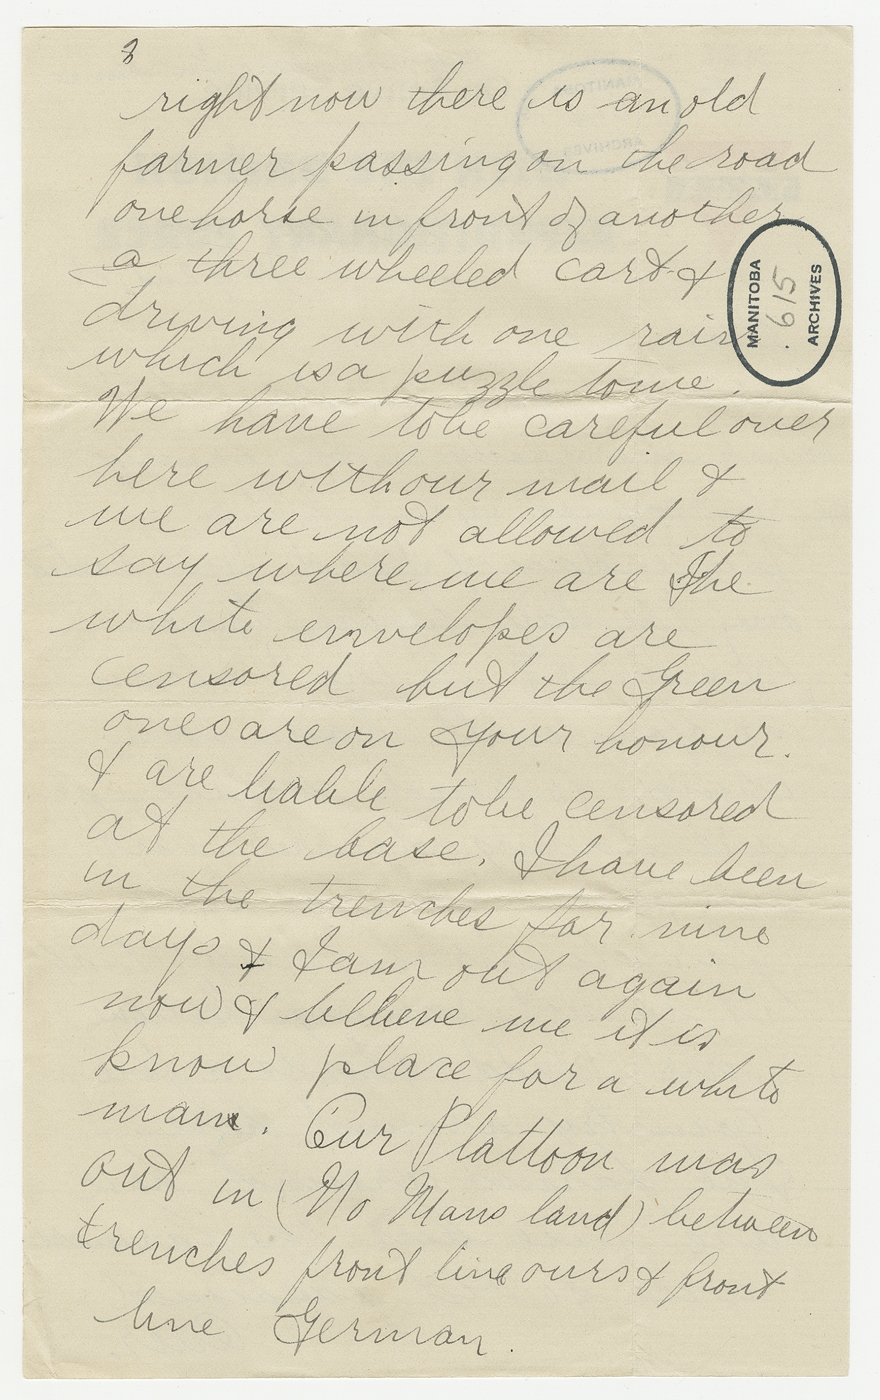 8
right now there is an old
farmer passing on the road
one horse in front of another
a three wheeled cart &
driving with one rain
which is a puzzle to me.
We have to be careful over
here with our mail &
we are not allowed to
say where we are The
white envelopes are
censored but the Green
ones are on your honour.
& are liable to be censored
at the base. I have been
in the trenches for nine
days & I am out again
now & bllieve me it is
know place for a white
man. Our Plattoon was
out in (No Mans land) between
trenches front line ours & front
line German.
MANITOBA
615
ARCHIVES